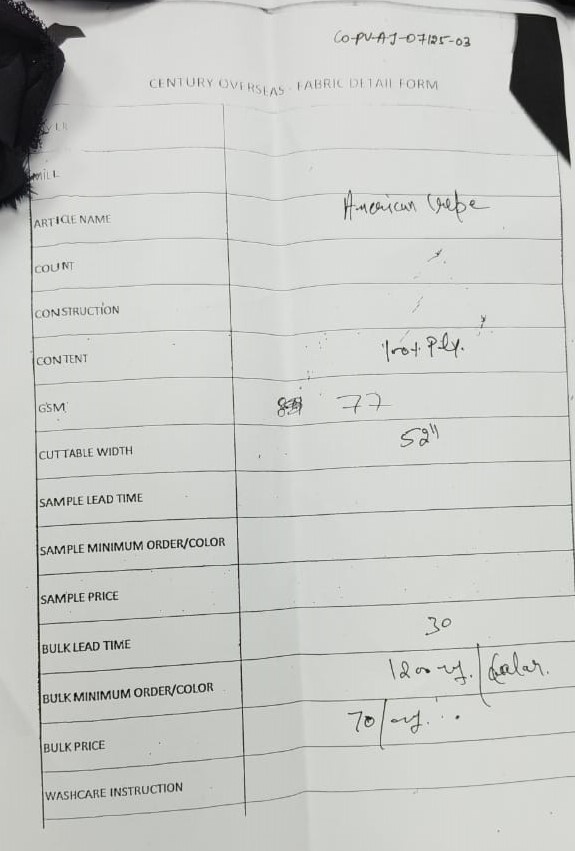 CO-PV-AJ-07125-03
CENTURY OVERSEAS - FABRIC DETAIL FORM
MILL
ARTICLE NAME American Crepe
COUNT
CONSTRUCTION
CONTENT 100% Ply.
GSM 77
CUTTABLE WIDTH 52"
SAMPLE LEAD TIME
SAMPLE MINIMUM ORDER/COLOR
SAMPLE PRICE
BULK LEAD TIME 30
BULK MINIMUM ORDER/COLOR 1200 
BULK PRICE 70/
WASHCARE INSTRUCTION